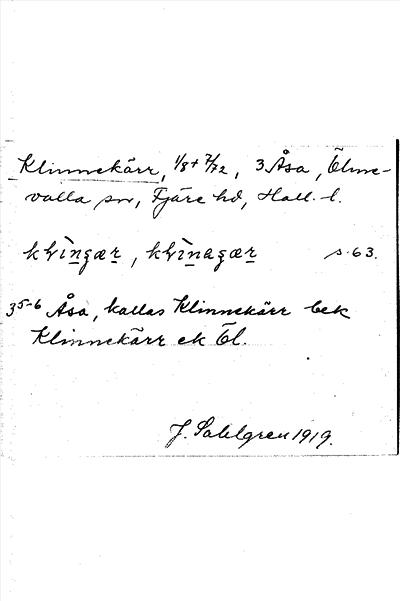 Klinnekärr, 1/8 + 7/72, 3 Åsa, Ölme-
valla sn, Fjäre hd, Hall. l.
s. 63.
3 5-6 Åsa, kallas Klinnekärr bek
Klinnekärr ek Öl.
J. Sahlgren 1919.